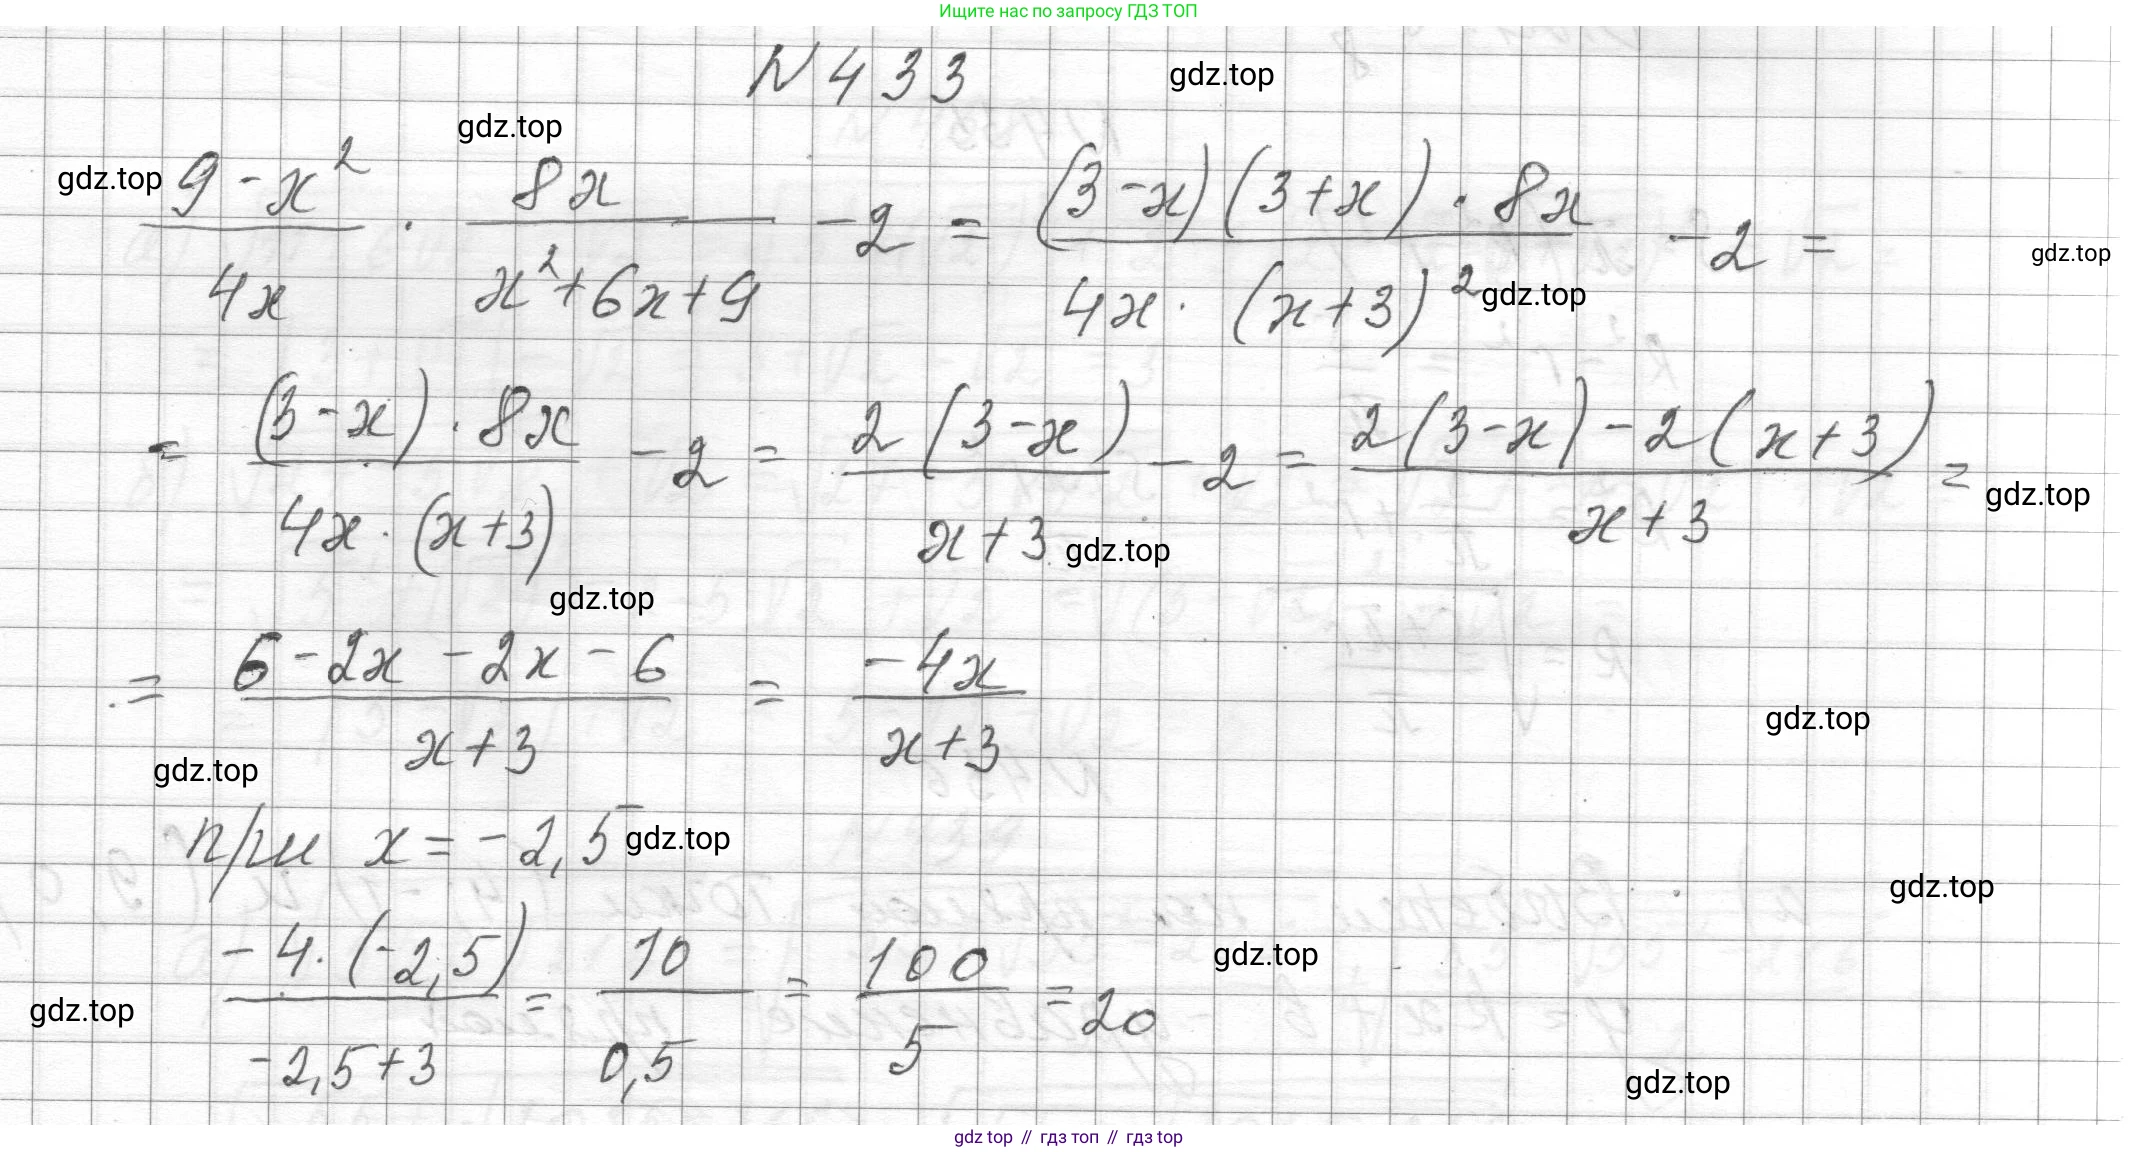 Ищите нас по запросу ГДЗ ТОП
N 433
gdz.top
gdz.top
gdz.top
(9 - x²)/(4x) · (8x)/(x² + 6x + 9) - 2 = ((3 - x)(3 + x) · 8x)/(4x · (x + 3)²) - 2 =
gdz.top
gdz.top
= ((3 - x) · 8x)/(4x · (x + 3)) - 2 = (2(3 - x))/(x + 3) - 2 = (2(3 - x) - 2(x + 3))/(x + 3) =
gdz.top
gdz.top
gdz.top
= (6 - 2x - 2x - 6)/(x + 3) = (-4x)/(x + 3)
gdz.top
gdz.top
при x = -2,5
gdz.top
gdz.top
(-4 · (-2,5))/(-2,5 + 3) = 10/0,5 = 100/5 = 20
gdz.top
gdz.top
gdz.top
gdz top // гдз топ // гдз top